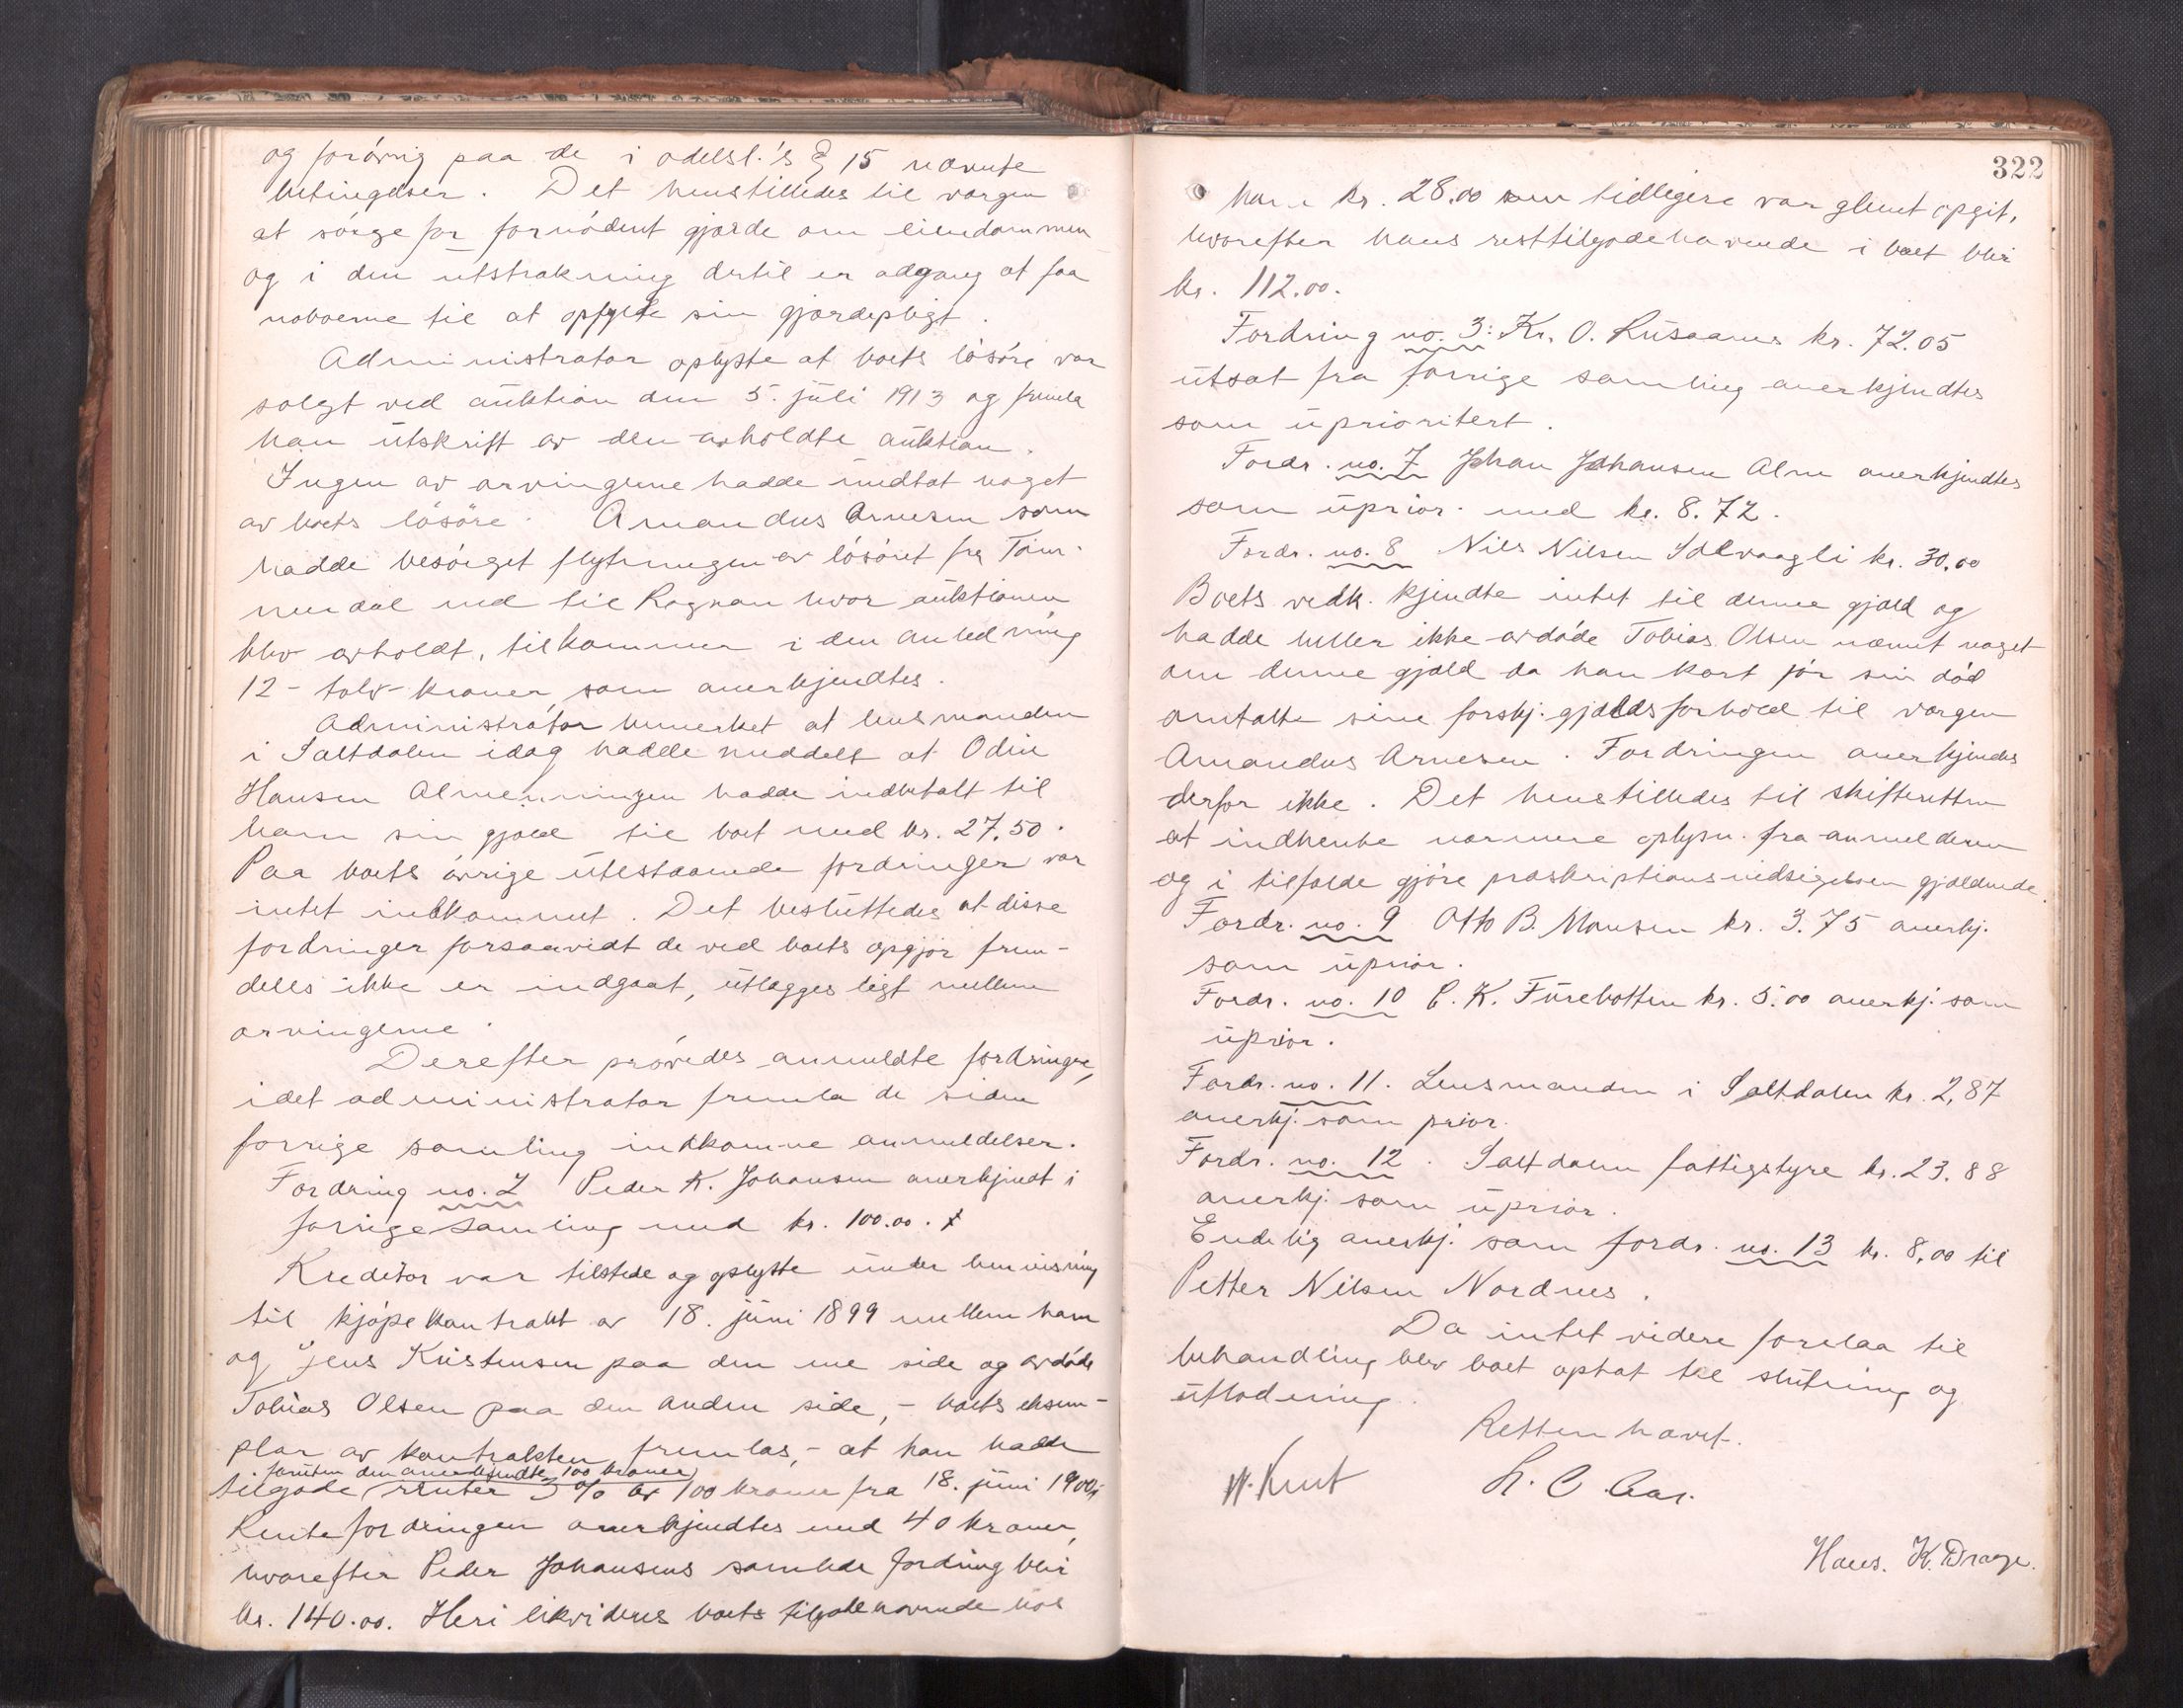 og forøvrig paa de i odelsl.'s § 15 nævnte
betingelser. Det henstilledes tilværgen
at sørge for fornødent gjærde om eiendommen
og i den utstrækning dertil er adgang at faa
naboerne til at opfylde sin gjærdepligt.
Administrator oplyste at boets løsøre var
solgt ved auktion den 5. juli 1913 og fremla
han utskrift av den avholdte auktion.
Ingen av arvingerne hadde indtat noget
av boets løsøre. Amandus Arnesen som
hadde besørget flytningen av løsøret fra
dal ned til Rognan hvor auktionen
blev avholdt, tilkommer i den anledning
12 - tolv - kroner som anerkjendtes.
Administrator bemerket at lensmanden
i Saltdalen idag hadde meddelt at Odin
Hansen Almenningen hadde indbetalt til
ham sin gjæld til boet med kr. 27,50.
Paa boets øvrige utestaaende fordringer var
intet indkommet. Det besluttedes at disse
fordringer forsaavidt de ved boets opgjør frem-
deles ikke er indgaat, utlægges likt mellem
arvingerne.
Derefter prøvedes anmeldte fordringer,
idet administrator fremla de siden
forrige samling indkomne anmeldelser.
Fordring no. 2 Peder K. Johansen anerkjendt i
forrige samling med kr. 100.00.
Kreditor var tilstede og oplyste under henvisning
til kjøpekontrakt av 18. juni 1899 mellem ham
og Jens Kristensen paa den ene side og avdøde
Tobias Olsen paa den anden side, - boets eksem-
plar av kontrakten fremlas, - at han hadde
foruten den anerkjendte 100 kroner
tilgode renter 3 % av 100 kroner fra 18. juni 1900.
Rentefordringen anerkjendtes med 40 kroner,
hvorefter Peder Johansens samlede fordring blir
kr. 140.00. Heri likvideres boets tilgodehavende hos
322
ham kr. 28.00 som tidligere var glemt opgit,
hvorefter hans resttilgodehavende i boet blir
kr. 112.00.
Fordring no. 3: Kr. O. Rusaanes kr. 72.05
utsat fra forrige samling anerkjendtes
som uprioritert.
Fordr. no. 7 Johan Johansen Alm anerkjendtes
som uprior. med kr. 8.72.
Fordr. no. 8 Nils Nilsen kr. 30.00
Boets vedk. kjendte intet til denne gjæld og
hadde heller ikke avdøde Tobias Olsen nævnt noget
om denne gjæld da han kort før sin død
omtalte sine forskj. gjældsforhold til værgen
Amandus Arnesen. Fordringen anerkjendes
derfor ikke. Det henstilledes til skifteretten
at indhente nærmere oplysn. fra anmelderen
og i tilfælde gjøre præskriptionsindsigelsen gjældende.
Fordr. no. 9 Otto B. Monsen kr. 3.75 anerkj.
som uprior.
Fordr. no. 10 P. K. Furebotten kr. 5.00 anerkj. som
uprior.
Fordr. no. 11. Lensmanden i Saltdalen kr. 2,87
anerkj. som prior.
Fordr. no. 12. Saltdalen fattigstyre kr. 23.88
anerkj. som uprior.
Endelig anerkj. som fordr. no. 13 kr. 8,00 til
Petter Nilsen Nordnes.
Da intet videre forelaa til
behandling blev boet optat til slutning og
utlodning.
Retten hævet.
Hans. K. Drage.